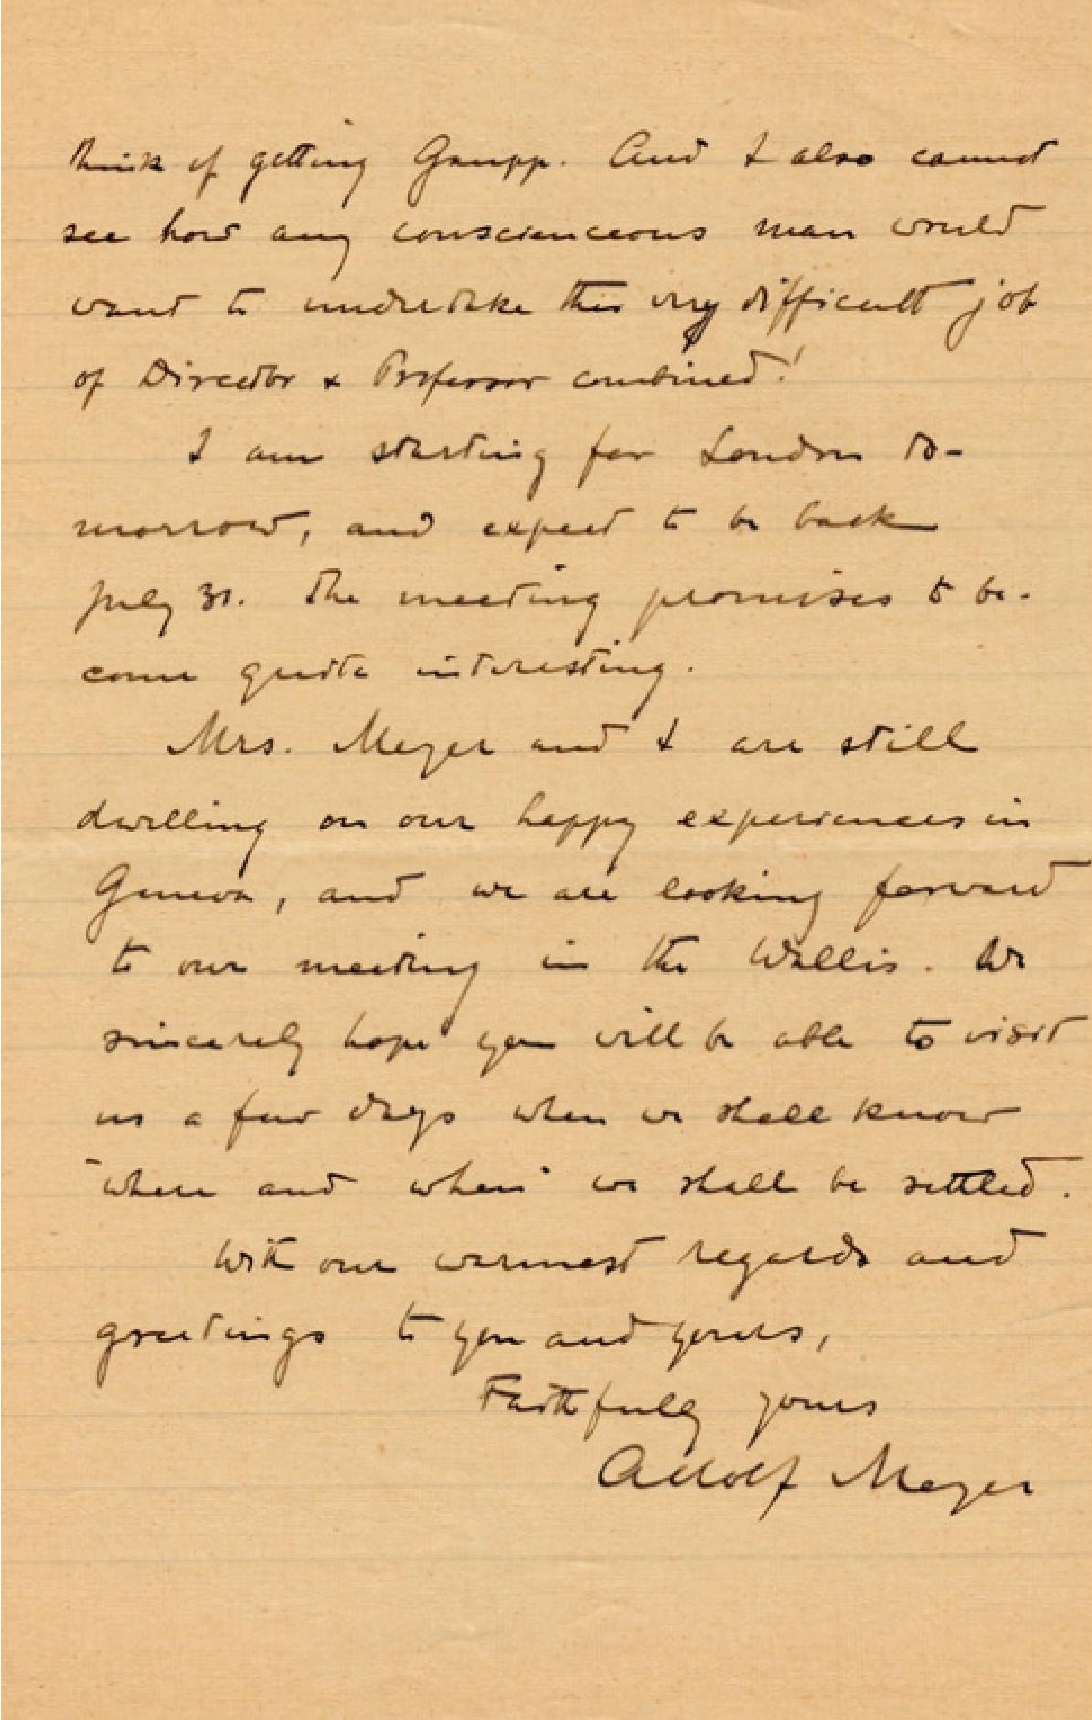 think of getting Gaupp. And I also cannot
see how any conscienceous man would
want to undertake this very difficult job
of Director & Professor combined!
I am starting for London to-
morrow, and expect to be back
July 31. The meeting promises to be-
come quite interesting.
Mrs. Meyer and I are still
dwelling on our happy experiences in
Geneva, and we are looking forward
to our meeting in the Wallis. We
sincerely hope you will be able to visit
us a few days when we shall know
"where and when" we shall be settled.
With our warmest regards and
greetings to you and yours,
Faithfully yours
Adolf Meyer